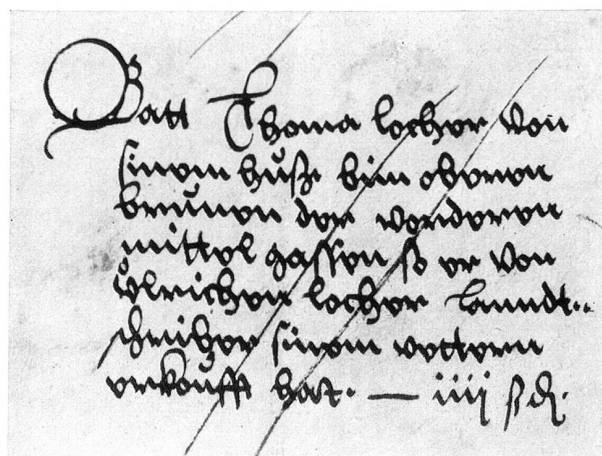 Datt Thoma locher von
sinem huse bim oberen
brunen der vorderen
mittel gassen so er von
Ulrichen locher lanndt..
schriber sinem vettern
erkoufft hat. — iiij ß d.